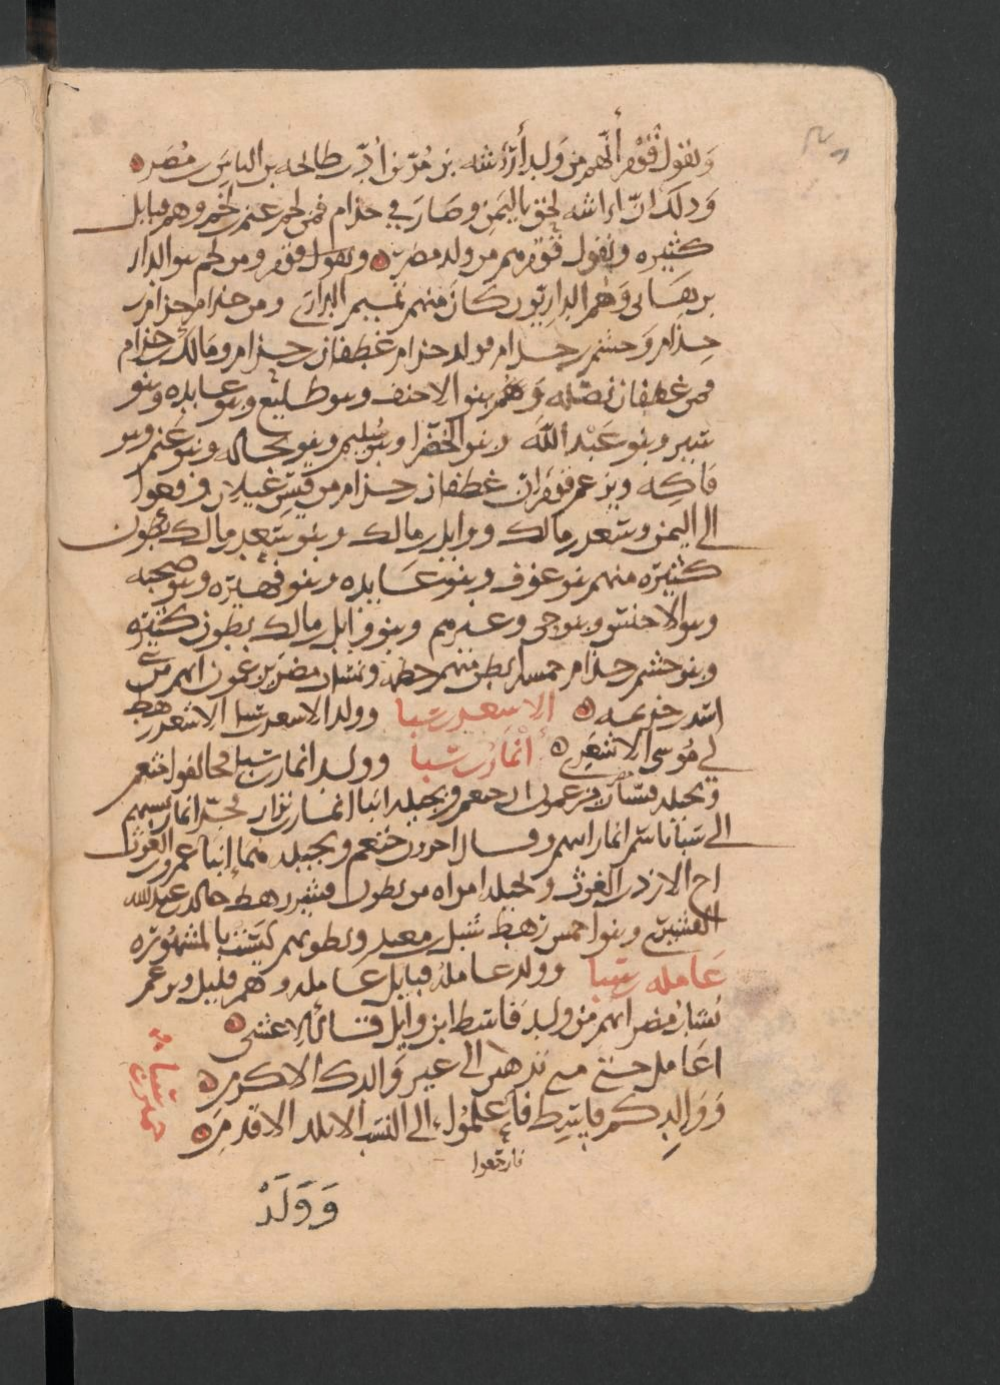 ويقول قوم أنهم من ولد أراشه بن مُرّ بن أدّ بن طابخه بن الياس بن مُضر
وذلك ان اراشه لحق باليمن وصار في جذام فمن لخم عنم لخم وهم قبايل
كثيره ويقول قوم هم من ولد مضر ويقول قوم ومن لخم بنو الدار
بن هانى وهم الداريّون كان منهم تميم الدارى ومن جذام حزام بن
جذام وحشم بن جذام فولد حزام غطفان بن حزام ومالك بن حزام
فمن غطفان نضله وهم بنو الاحنف وبنو طليع وبنو عايده وبنو
شبير وبنو عَبْد الله وبنو الخضرا وبنو سليم وبنو بحاله وبنو غنم وبنو
فاكه ويزعم قوم ان غطفان بن حزام من قيس عيلان وقعوا
الى اليمن وسعد بن مالك ووايل بن مالك وبنو سعد بن مالك بطون
كثيره منهم بنو عوف وبنو عايده وبنو فهيره وبنو صحبه
وبنو الاخنس وبنو حي وعيرهم وبنو وايل بن مالك بطون كثيره
وبنو حشم بن جذام خمسه ابطن منهم حطمه ونساب مضر يزعمون انهم من بني
اسد بن خزيمه الاسعد بن سبا وولد الاسعد بن سبا الاشعر رهط
ابي موسى الاشعري أنمار بن سبا وولد انمار بن سبا فحالفوا خثعم
وبجيله فنساب مضر يزعمون ان خثعم وبجيله ابنا انمار بن نزار فجرّ انمار نسبهم
الى سبا باسم انمار ابيهم وقال اخرون خثعم وبجيله هما ابنا عمرو بن الغوث
اخ الازد بن الغوث وبجيله امراه من بطون قسر رهط خالد بن عبد الله
القسري وبنو احمس رهط شبل بن معبد وبطونهم ليست بالمشهوره
عامله بن سبا وولد عامله قبايل عامله وهم قليل ويزعم
نساب مضر انهم من ولد قاسط ابن وايل قال الاعشى
اعامل حتى متى تذهبين الى غير والدك الاكرم
ووالدكم قاسط فاعلموا الى النسب الاتلد الاقدم
فارجعوا
حمير بن سبا
وَوَلَدَ